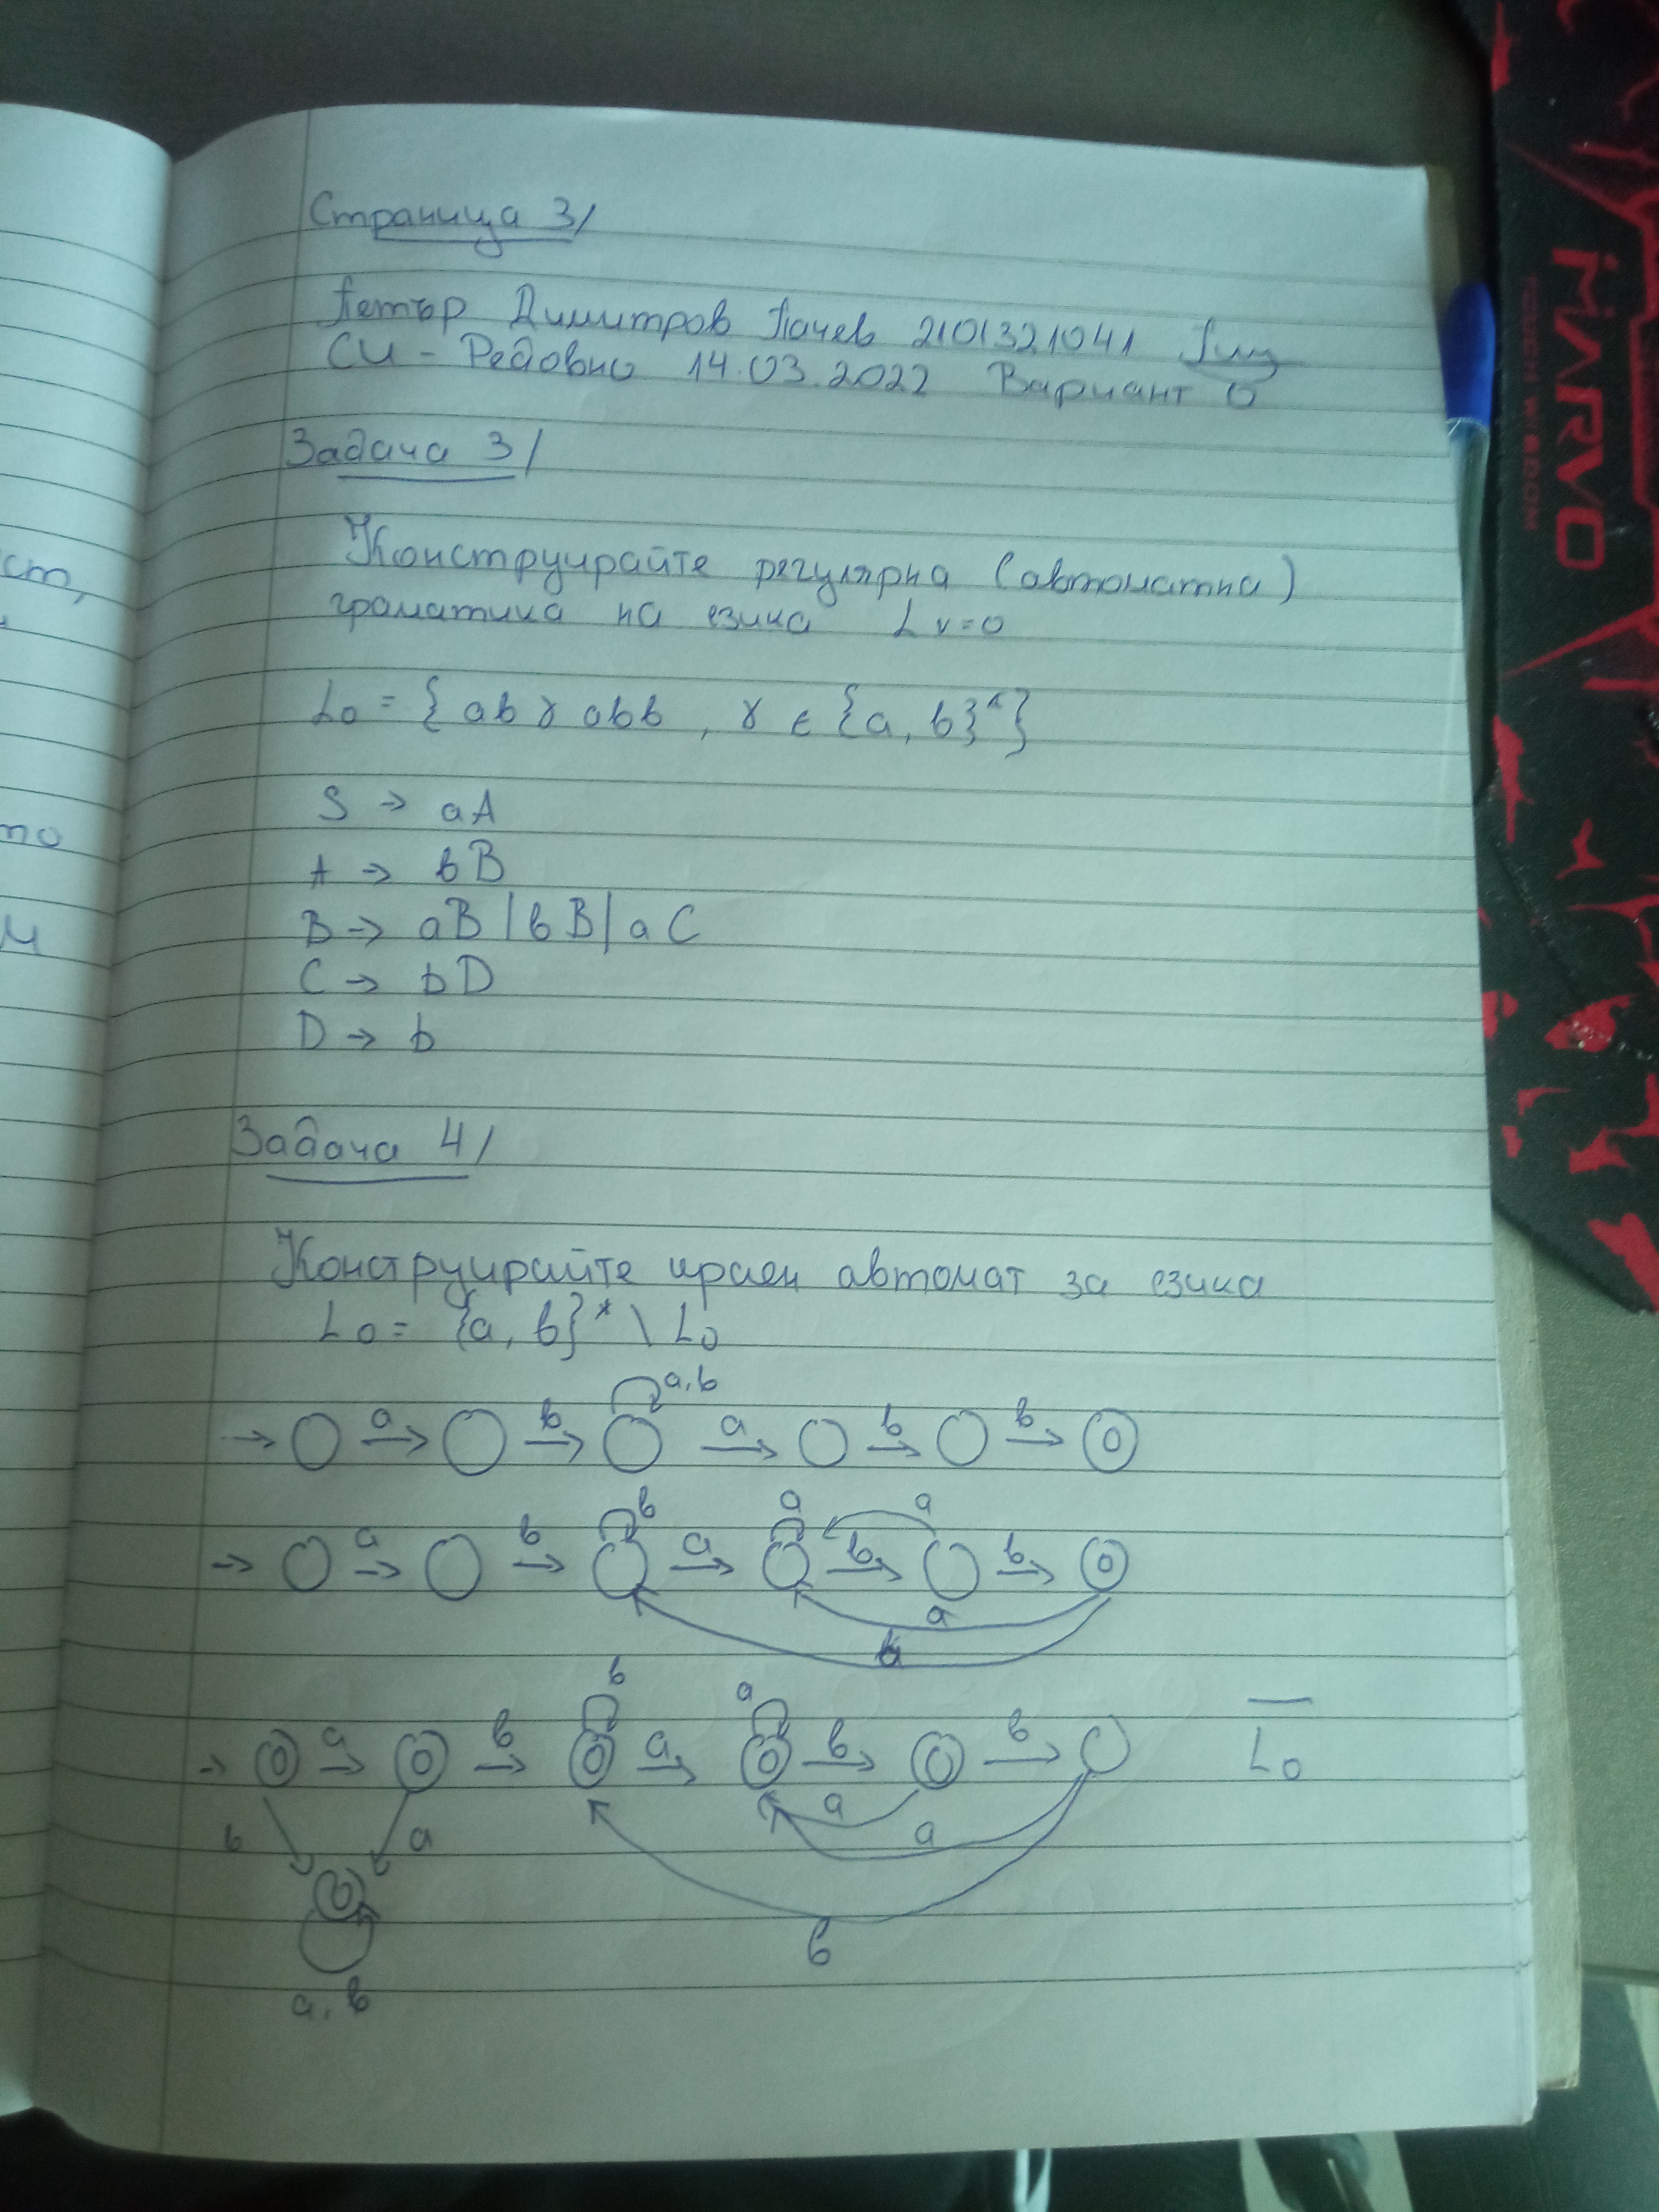 Страница 3/
Петър Димитров Пачев 2101321041
СИ - Редовно 14.03.2022 Вариант 0
Задача 3/
Конструирайте регулярна (автоматна)
граматика на езика L v=0
L0 = { ab γ abb , γ ε {a, b}* }
S → aA
A → bB
B → aB | bB | aC
C → bD
D → b
Задача 4/
Конструирайте краен автомат за езика
L0 = {a, b}* \ L0
a,b
→ a → b → a → b → b →
b a a
→ a → b → a → b → b →
a
b
b a
→ a → b → a → b → b → L0
b a a a
b
a, b
ст,
то
м
MARVO